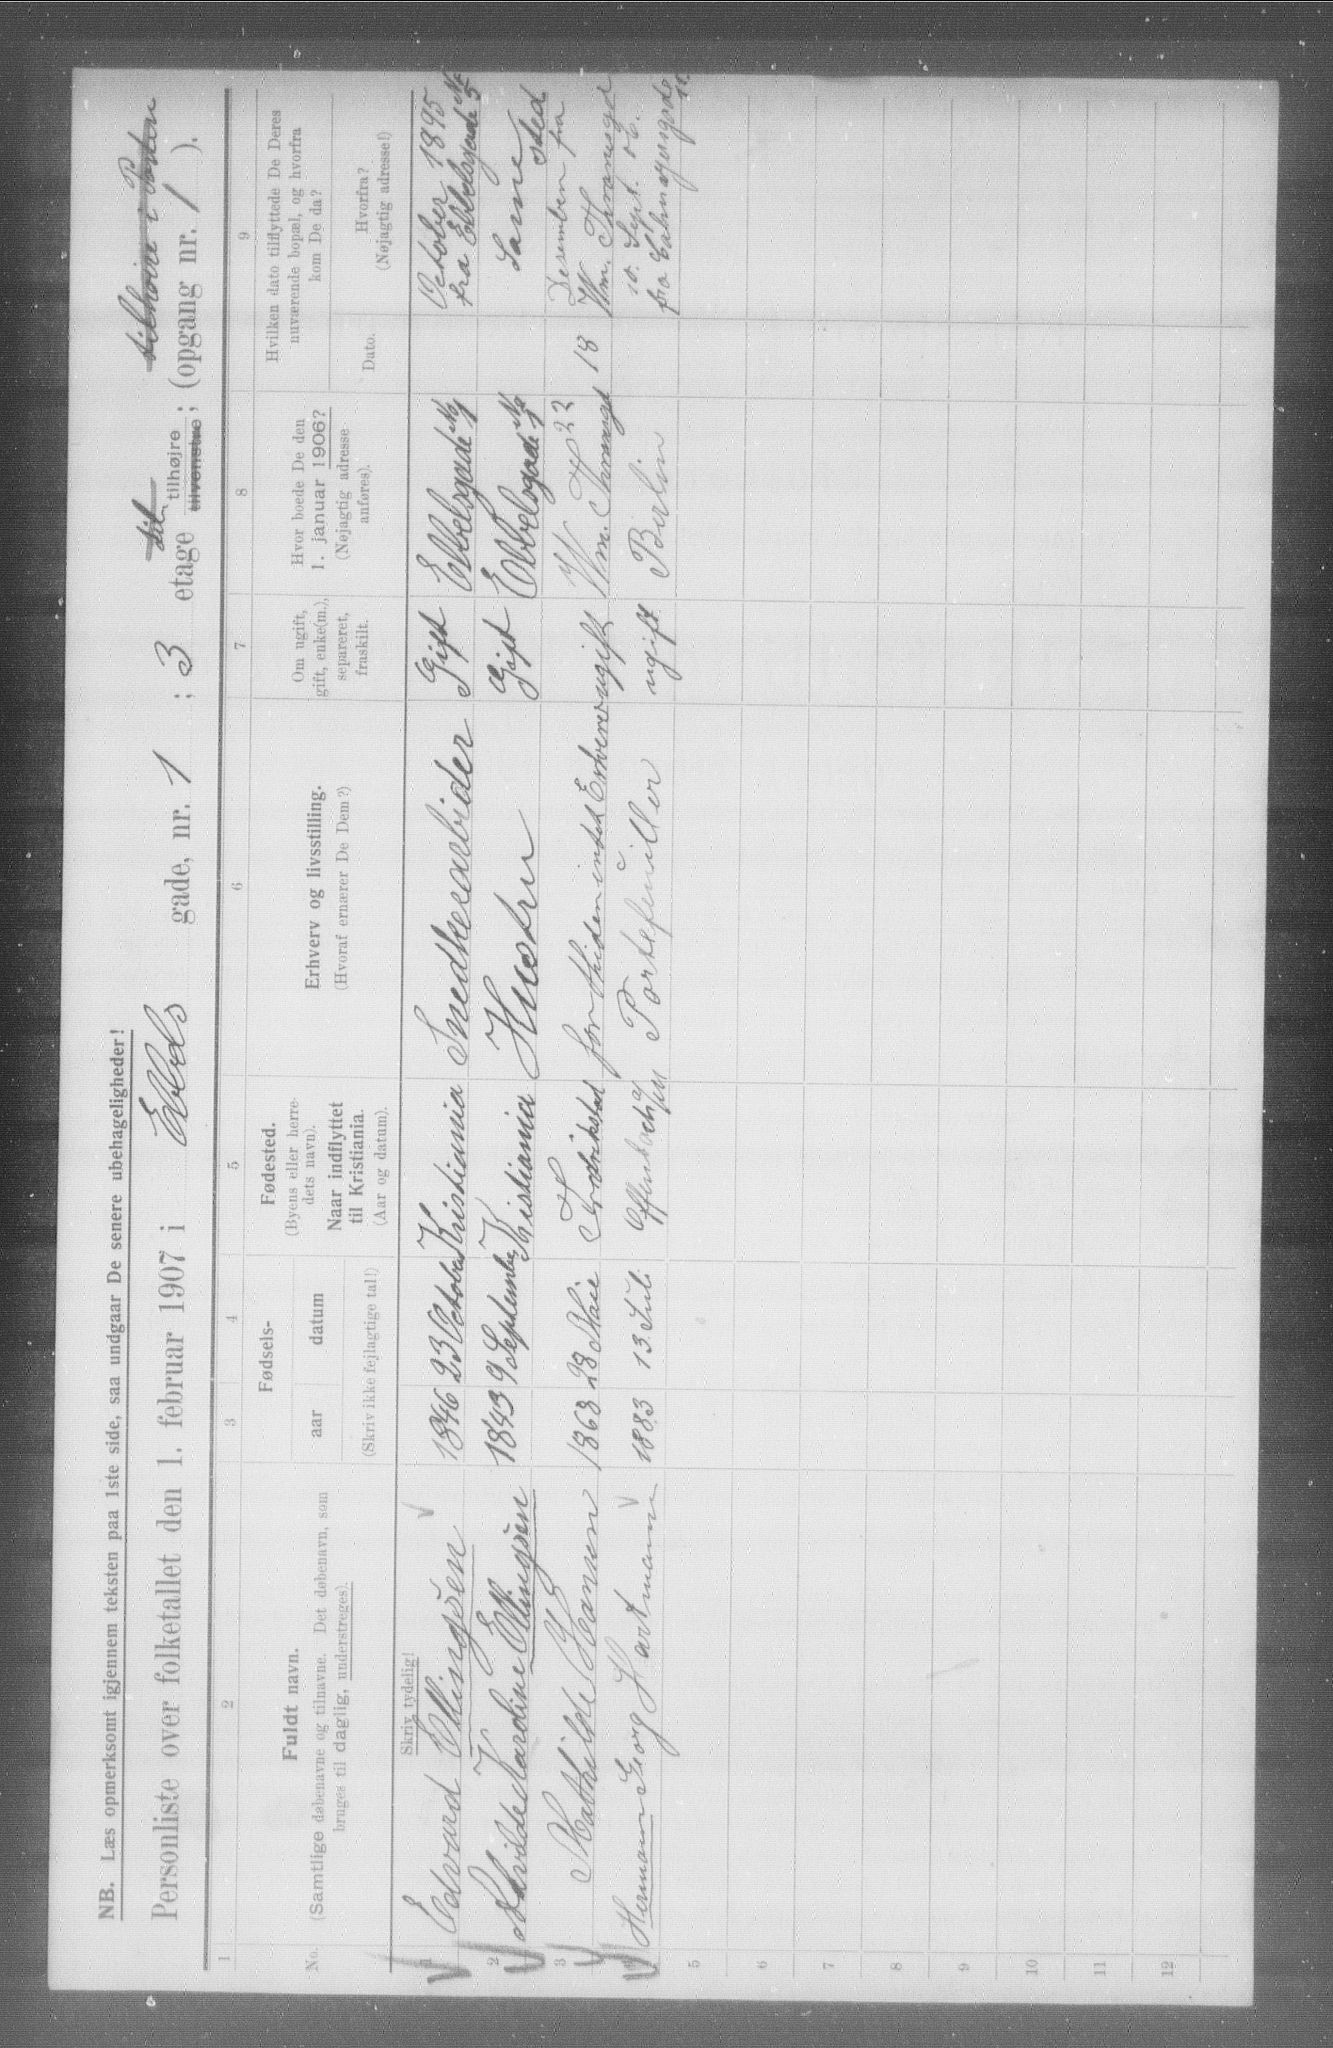 NB. Læs opmerksomt igjennem teksten paa 1ste side, saa undgaar De senere ubehageligheder!
Personliste over folketallet den 1. februar 1907 i Ebbels gade, nr. 1 ; 3 etage til tilhøjre tilvenstre ; (opgang nr. 1 ).
tilhøire i Porten
1 2 3 4 5 6 7 8 9
No.
Fuldt navn.
(Samtlige døbenavne og tilnavne. Det døbenavn, som
bruges til daglig, understreges).
Fødsels-
aar datum
(Skriv ikke fejlagtige tal!)
Fødested.
(Byens eller herre-
dets navn).
Naar indflyttet
til Kristiania.
(Aar og datum).
Erhverv og livsstilling.
(Hvoraf ernærer De Dem?)
Om ugift,
gift, enke(m.),
separeret,
fraskilt.
Hvor boede De den
1. januar 1906?
(Nøjagtig adresse
anføres).
Hvilken dato tilflyttede De Deres
nuværende bopæl, og hvorfra
kom De da?
Dato.
Hvorfra?
(Nøjagtig adresse!)
Skriv tydelig!
1 Edvard Ellingsen 1846 23 October Kristiania Snedkerarbider Gift Ebbelsgade No 1 October 1895
fra Ebbelsgade No 5
2 Alvilde Karoline Ellingsen 1843 9 September Kristiania Hustru Gift Ebbelsgade No 1 Same sted
3 Mathilde Hansen 1868 28 Maie Fredrikstad for tiden intet Erhverv ugift Wm. Thranesgd 18 Desember fra
Wm. Thranesgd
22
4 Hermann Georg Hartmann 1883 13 Juli Offenbach a/M Portefeuiller ugift Berlin 10. Sept. 06.
fra
5
6
7
8
9
10
11
12